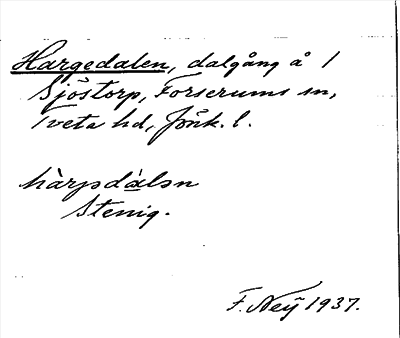 Hargedalen, dalgång å 1
Sjöstorp, Forserums sn,
Tveta hd, Jönk. l.
hàrjsdàlən
Stenig.
F. Neij 1937.